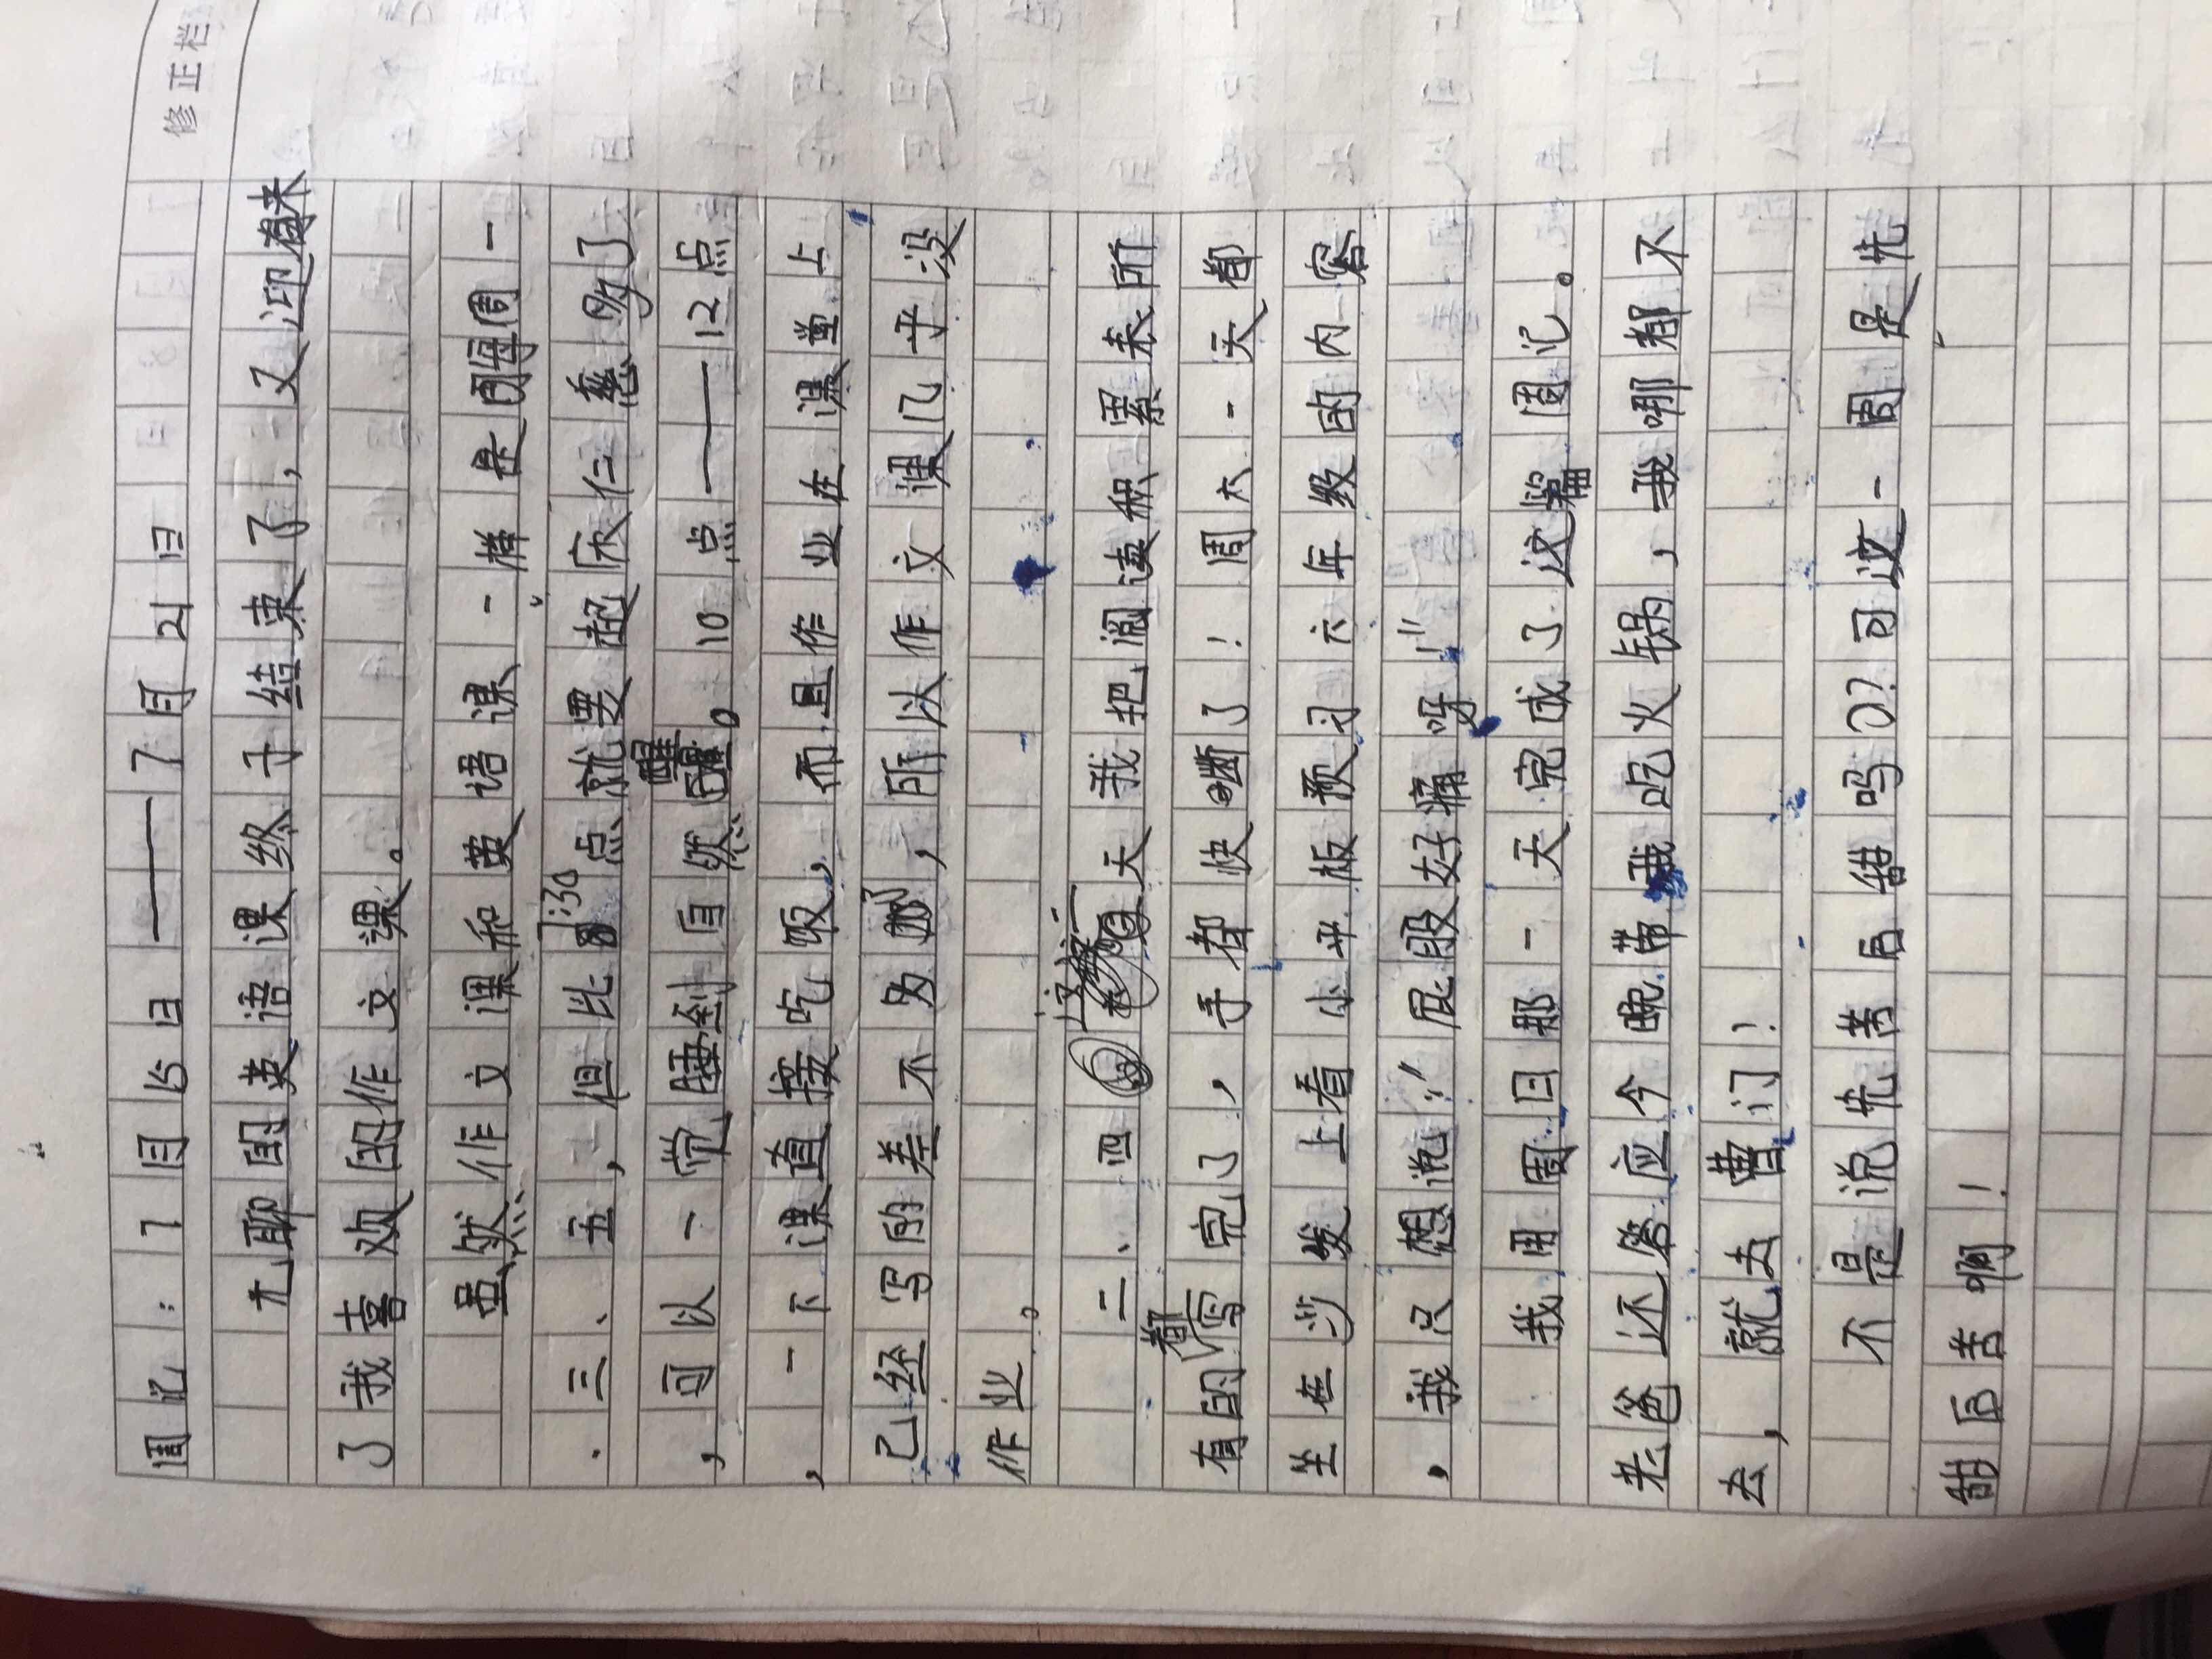 修正栏
周记：7月15日——7月21日
无聊的英语课终于结束了，又迎来
了我喜欢的作文课。
虽然作文课和英语课一样是周每周一
、三、五，但比7:30点就要起床仁慈的了
，可以一觉睡到自然醒。10点——12点
，一下课直接吃饭，而且作业在课堂上
已经写的差不多，所以作文课几乎没
作业。
二、四这二天我把阅读积累表所
有的都写完了，手都快断了！周六一天都
坐在沙发上看小平板预习六年级的内容
，我只想说：“屁股好痛呀！”
我用周日那一天完成了这篇周记。
老爸还答应今晚带我吃火锅，我哪都不
去，就去曹门！
不是说先苦后甜吗？可这一周是先
甜后苦啊！